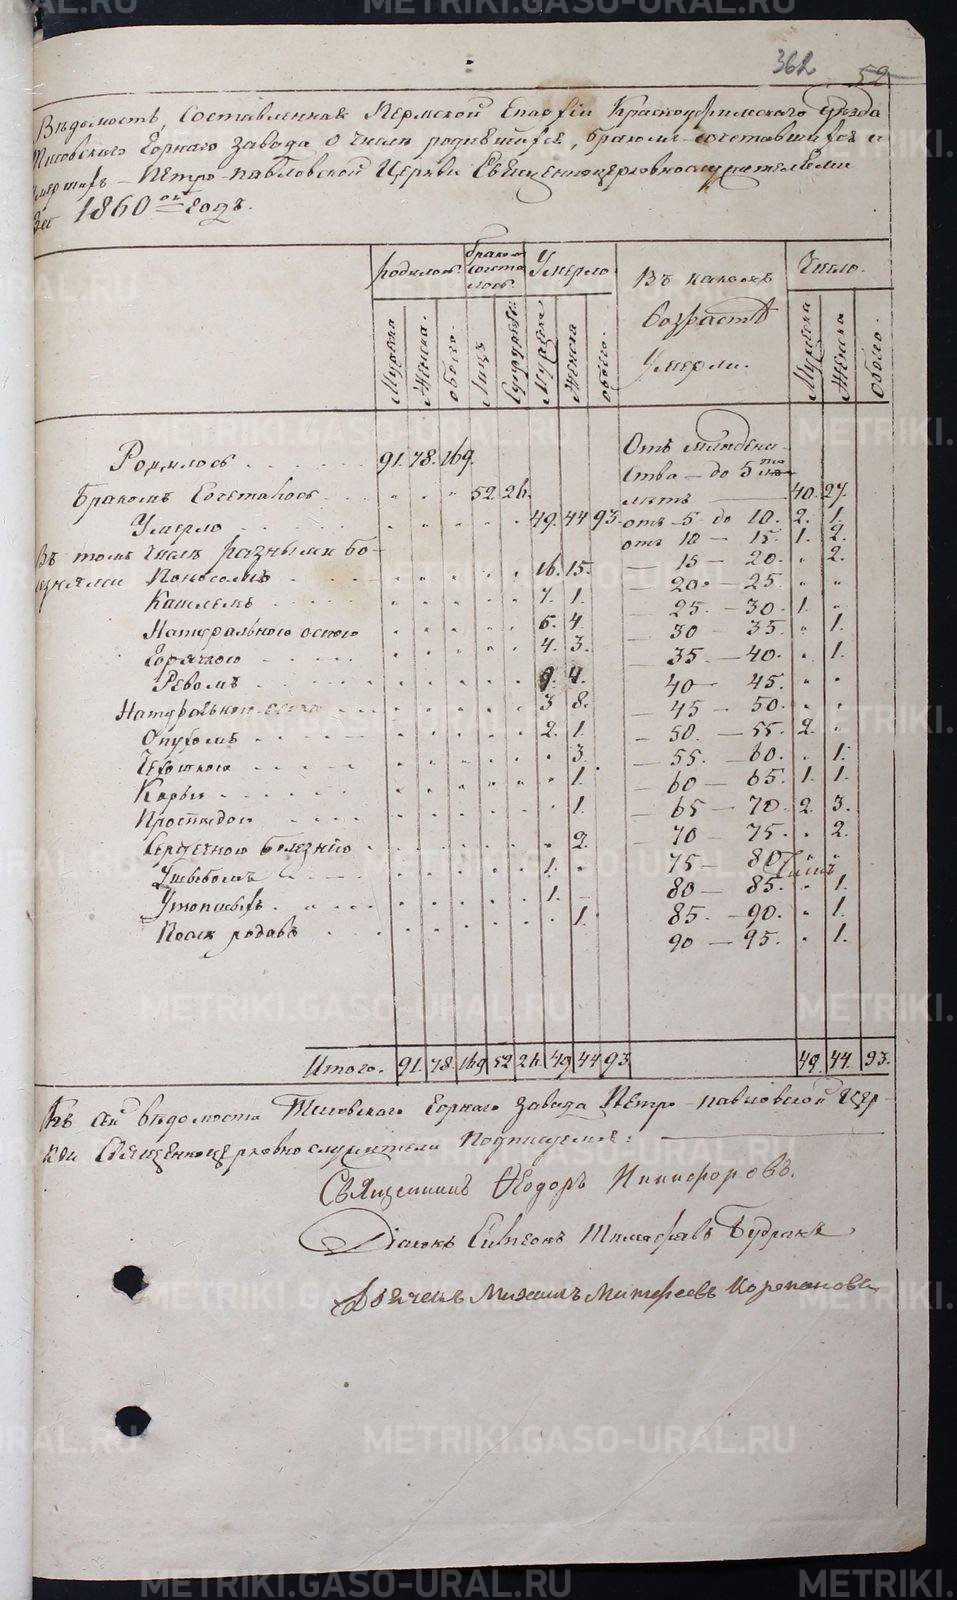 362 52
Вѣдомость, Составленная Пермской Епархіи Красноуфимскаго уѣзда
Тисовскаго Горнаго завода, о числѣ родившихся, бракомъ сочетавшихся и
умершихъ – Петро-павловской Церкви Священноцерковнослужителями
за 1860ой годъ.
родилось. бракомъ сочеталось. Умерло. Въ какомъ возрастѣ умерли. Число.
Мужеска Женска. обоего. Лицъ Супружествъ Мужеска Женска обоего. Мужеска Женска Обоего.
Родилось 91. 78. 169.
Отъ младенче-
ства – до 5ти
лѣтъ 40. 27.
Бракомъ Сочеталось 52. 26.
Умерло 49. 44 93.
отъ 5 до 10. 2. 1.
отъ 10 – 15. 1. 2.
Въ томъ числѣ разными бо-
лезнями Поносомъ 16. 15.
– 15 – 20. „ 2.
Кашлемъ 7. 1.
– 20. – 25. „ „
Натуральною оспою 6. 4.
– 25. – 30. 1. „
Горячкою 4. 3.
– 30 – 35. „ 1.
Ревомъ 9. 4.
– 35. – 40. „ 1.
3 8.
40 – 45. „ „
Опухомъ 2. 1.
– 45 – 50. „ „
Чехоткою „ 3.
– 50. – 55. 2. „
Корью „ 1.
– 55. – 60. „ 1.
Простудою „ 1.
– 60 – 65. 1. 1.
Сердечною болезнію „ 2.
– 65 – 70. 2. 3.
Ушибомъ 1. „
70 – 75. „ 2.
Утопшихъ 1. –
75 – 80 „ „
Послѣ родовъ „ 1.
80 – 85. „ 1.
85. – 90. „ 1.
90 – 95. „ 1.
Итого. 91. 78. 169 52 26. 49 44 93 49. 44. 93.
Къ сей вѣдомости Тисовскаго Горнаго завода Петро-павловской Цер-
кви Священноцерковнослужители подписуемся:
Священникъ Ѳеодоръ Никифоровъ.
Діаконъ Симеонъ
Дьячекъ Михаилъ Корепановъ
METRIKI.GASO-URAL.RU